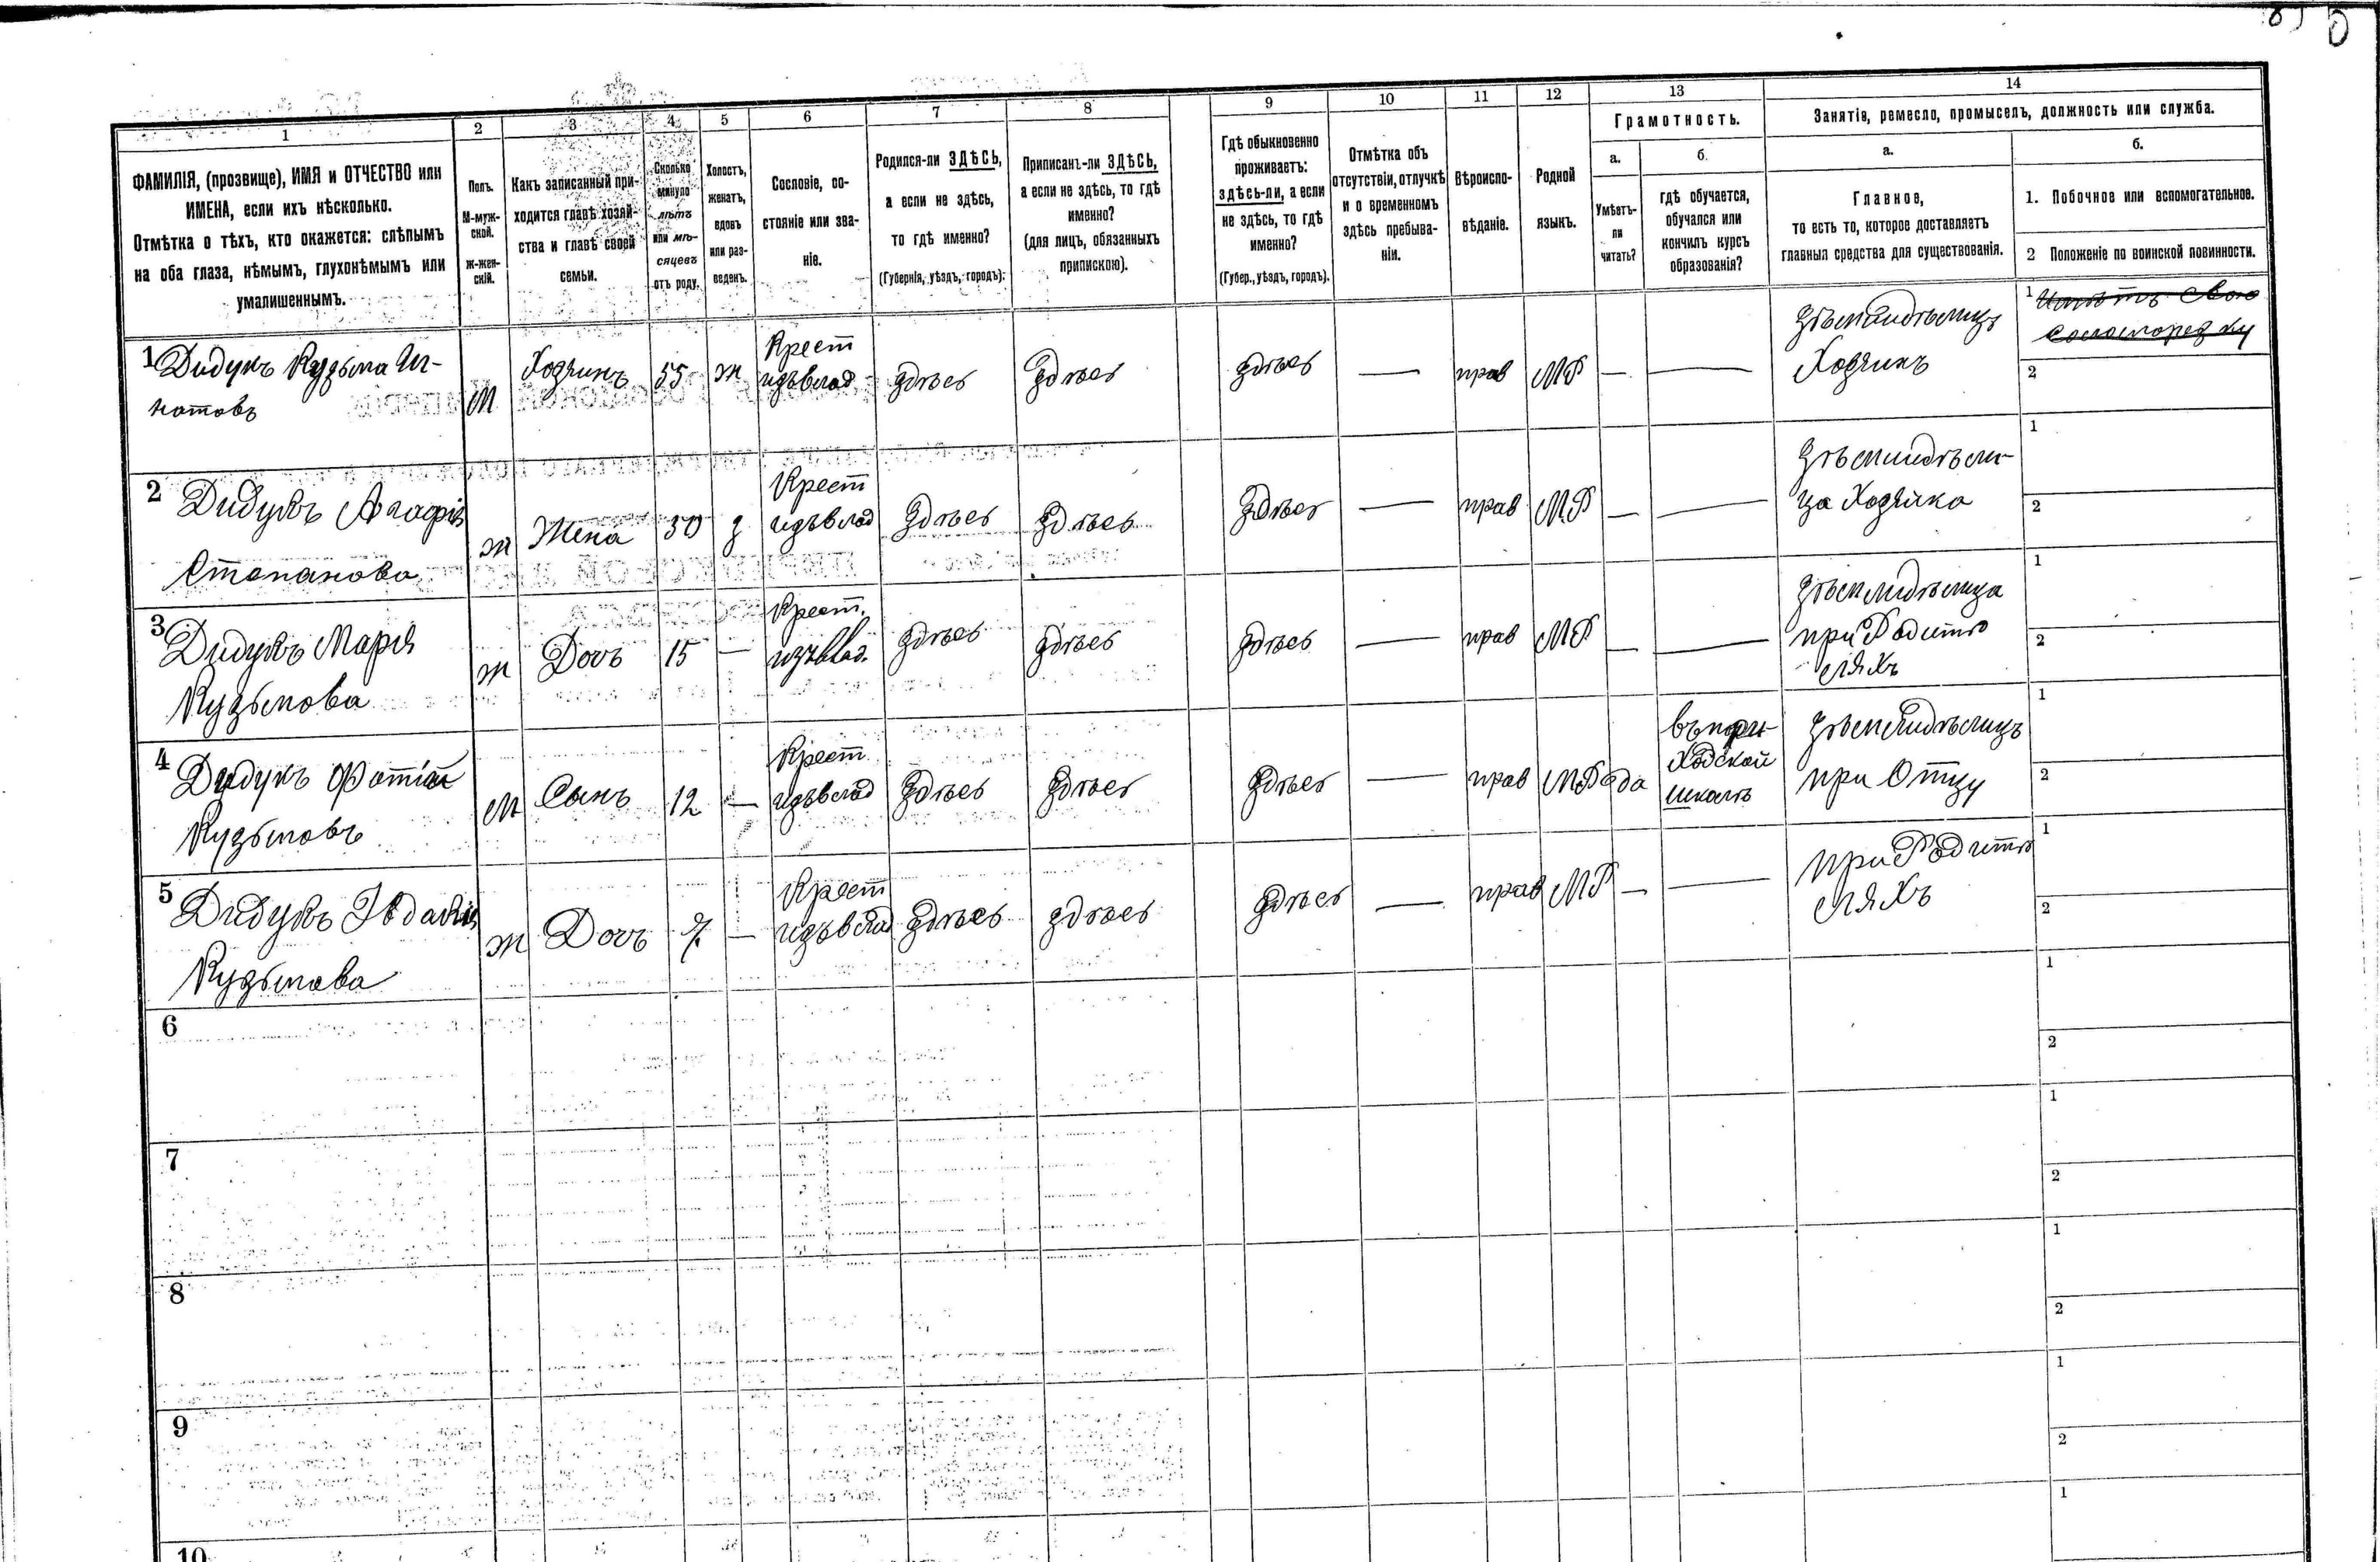 1
2
3
4
5
6
7
8
9
10
11
12
13
14
ФАМИЛІЯ, (прозвище), ИМЯ и ОТЧЕСТВО или
ИМЕНА, если ихъ нѣсколько.
Отмѣтка о тѣхъ, кто окажется: слѣпымъ
на оба глаза, нѣмымъ, глухонѣмымъ или
умалишеннымъ.
Полъ.
М-муж-
ской.
Ж-жен-
скій.
Какъ записанный при-
ходится главѣ хозяй-
ства и главѣ своей
семьи.
Сколько
минуло
лѣтъ
или мѣ-
сяцевъ
отъ роду.
Холостъ,
женатъ,
вдовъ
или раз-
веденъ.
Сословіе, со-
стояніе или зва-
ніе.
Родился-ли ЗДѢСЬ,
а если не здѣсь,
то гдѣ именно?
(Губернія, уѣздъ, городъ).
Приписанъ-ли ЗДѢСЬ,
а если не здѣсь, то гдѣ
именно?
(для лицъ, обязанныхъ
припискою).
Гдѣ обыкновенно
проживаетъ:
здѣсь-ли, а если
не здѣсь, то гдѣ
именно?
(Губер., уѣздъ, городъ).
Отмѣтка объ
отсутствіи, отлучкѣ
и о временномъ
здѣсь пребыва-
ніи.
Вѣроиспо-
вѣданіе.
Родной
языкъ.
Грамотность.
а.
Умѣетъ-
ли
читать?
б.
гдѣ обучается,
обучался или
кончилъ курсъ
образованія?
Занятіе, ремесло, промыселъ, должность или служба.
а.
Главное,
то есть то, которое доставляетъ
главныя средства для существованія.
б.
1. Побочное или вспомогательное.
2 Положеніе по воинской повинности.
1 Дидукъ Кузьма Иг-
натовъ
М
Хозяинъ
55
ж
Крест
изъ влад
здѣсь
здѣсь
здѣсь
—
прав
МР
—
—
Хозяинъ
1
2
2 Дидукъ Агафія
Степанова
ж
Жена
50
з
Крест
изъ влад
здѣсь
здѣсь
здѣсь
—
прав
МР
—
—
ца Хозяйка
1
2
3 Дидукъ Марія
Кузьмова
ж
Дочь
15
—
Крест.
изъ влад.
здѣсь
здѣсь
здѣсь
—
прав
МР
—
—
при Родите
ляхъ
1
2
4 Дидукъ Фотій
Кузьмовъ
М
Сынъ
12
—
Крест
изъ влад
здѣсь
здѣсь
здѣсь
—
прав
МР
да
въ при-
ходской
школѣ
при Отцу
1
2
5 Дидукъ
Кузьмова
ж
Дочь
7
—
Крест
изъ влад
здѣсь
здѣсь
здѣсь
—
прав
МР
—
—
при Родите
ляхъ
1
2
6
1
2
7
1
2
8
1
2
9
1
2
10
1